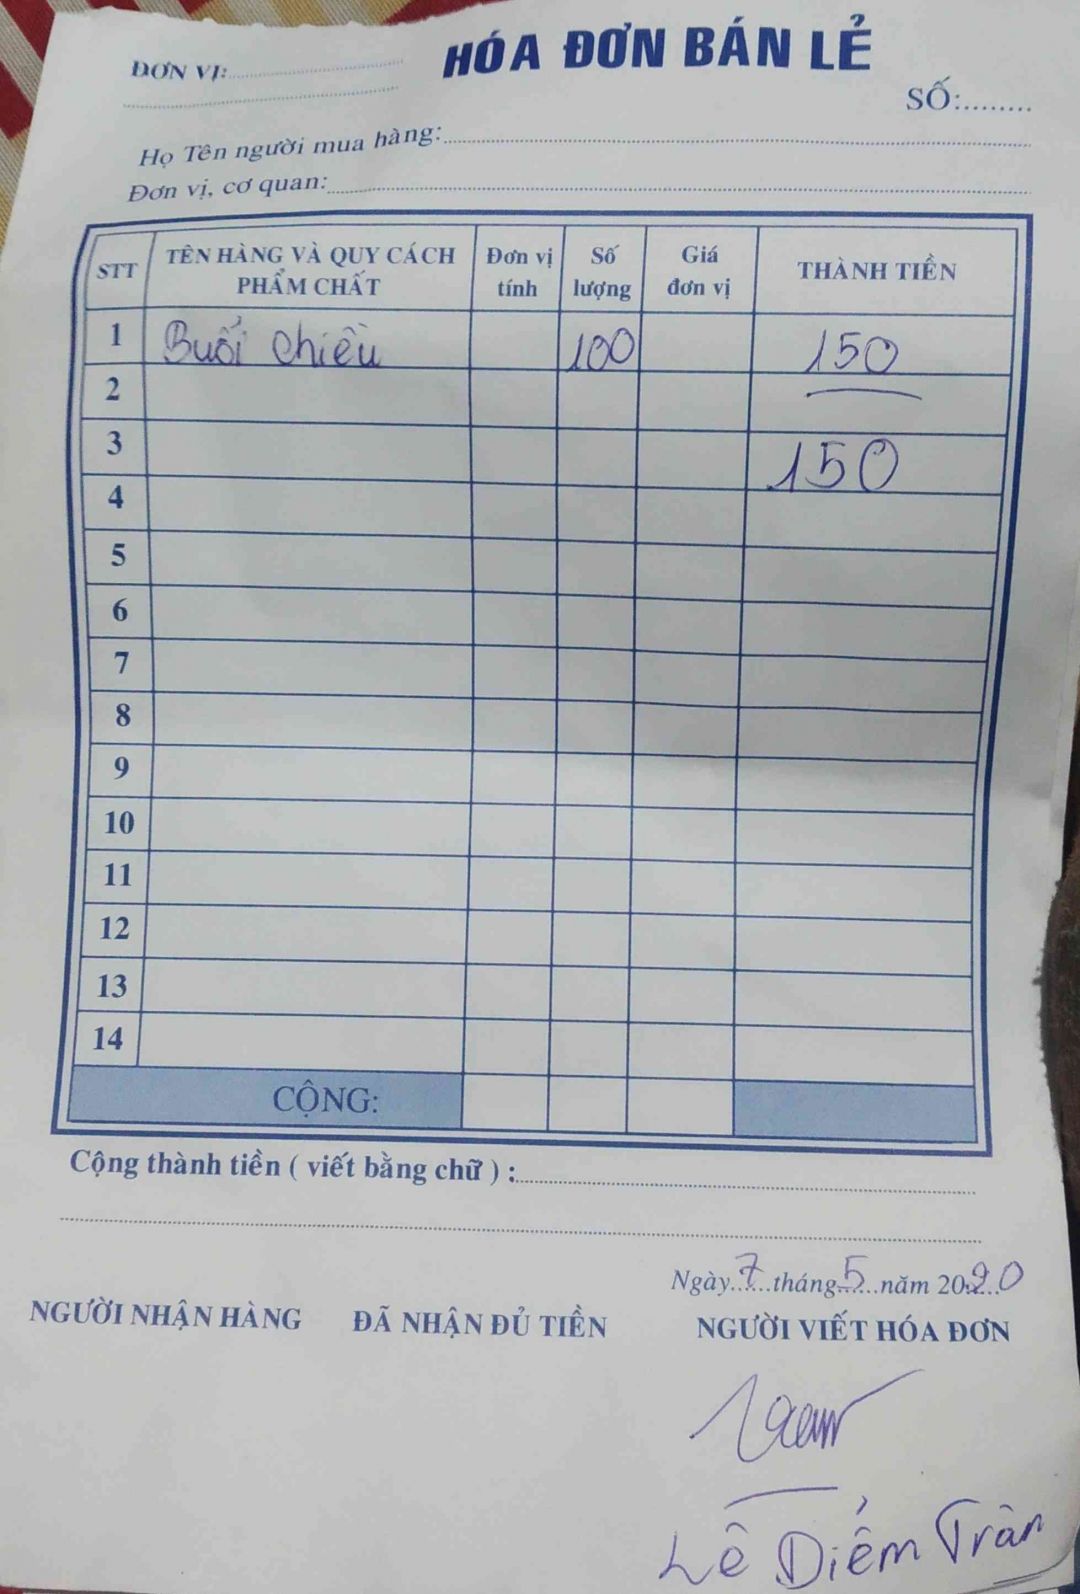 HÓA ĐƠN BÁN LẺ
ĐƠN VỊ:
SỐ:
Họ Tên người mua hàng:
Đơn vị, cơ quan:
STT TÊN HÀNG VÀ QUY CÁCH PHẨM CHẤT Đơn vị tính Số lượng Giá đơn vị THÀNH TIỀN
1 Buổi chiều 100 150
2
3 150
4
5
6
7
8
9
10
11
12
13
14
CỘNG:
Cộng thành tiền ( viết bằng chữ ) :
Ngày 7 tháng 5 năm 2020
NGƯỜI NHẬN HÀNG ĐÃ NHẬN ĐỦ TIỀN NGƯỜI VIẾT HÓA ĐƠN
Lê Diễm Trân